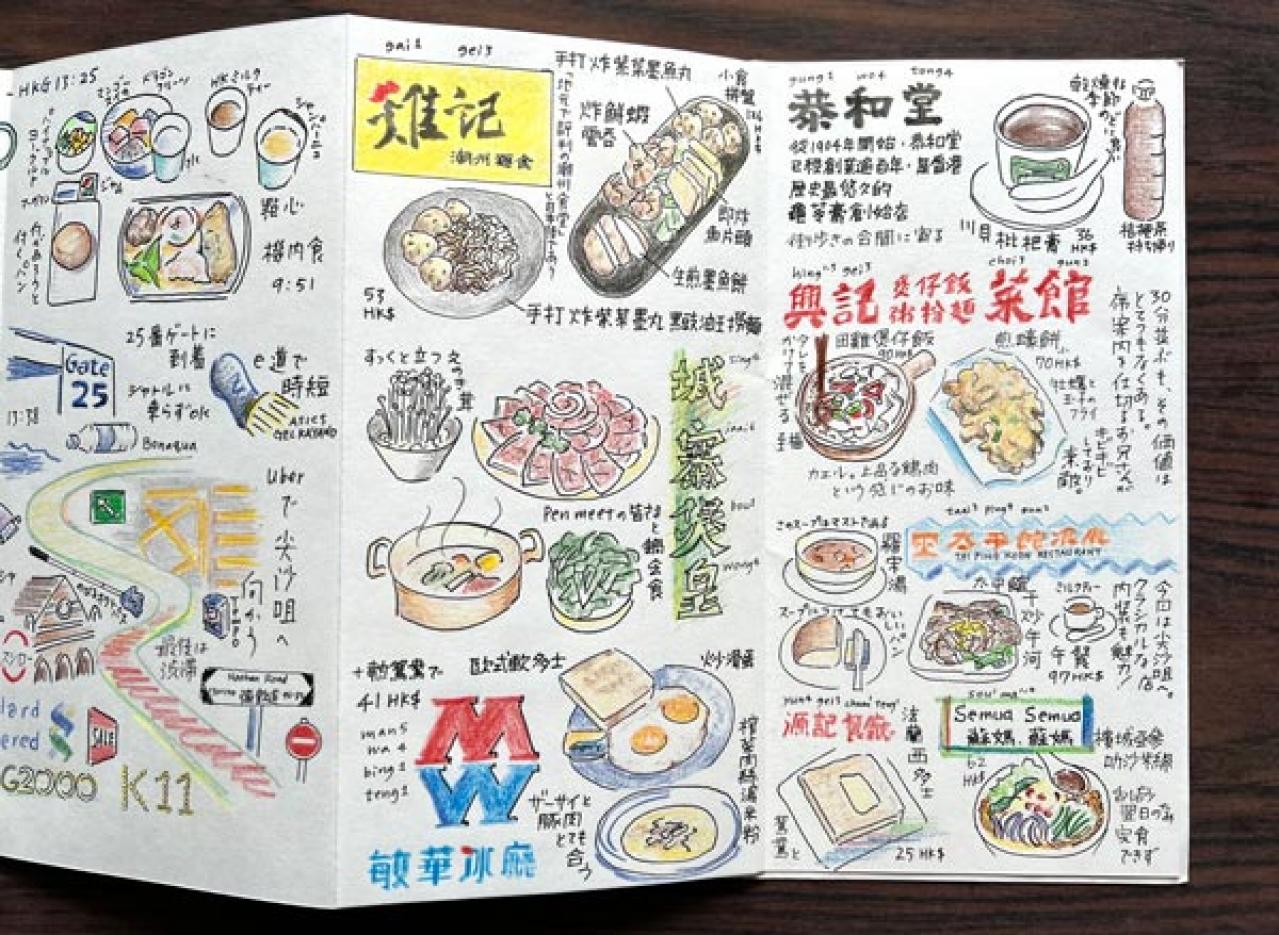 HKG 13:25
HKミルク
ティー
ジャム
点心
機内食
9:51
25番ゲートに
到着
シャトルに
乗らずok
Gate
25
13:38
e道で
時短
ASICS
GEL KAYANO
Bonaqua
Uberで尖沙咀へ
向かう
TEMPO
最後は
渋滞
Nathan Road
彌敦道
SALE
G2000
K11
gai1 gei3
雞記
潮州麵食
手打炸紫菜墨魚丸
小食
拼盤
炸鮮蝦
雲吞
即炸
魚片頭
生煎墨魚餅
53
HK$
手打炸紫菜墨丸黑豉油王撈麵
すっくと立つえのき茸
sing4
城
寨
煲
皇
wong4
Pen meetの皆さまと鍋会食
+熱鴛鴦で
41 HK$
歐式軟多士
炒滑蛋
man5
wa4
bing1
teng1
MW
榨菜肉絲湯米粉
ザーサイと
豚肉
とても
合う
敏華冰廳
gung1 wo4 tong4
恭和堂
從1904年開始,恭和堂
已經創業過百年,是香港
歷史最悠久的
龜苓膏創始店
街歩きの合間に寄る
川貝枇杷膏
36
HK$
桔梗茶
持ち帰り
hing1 gei3
choi3 gun2
興記
煲仔飯
粥粉麵
菜館
田雞煲仔飯
90HK$
煎蠔餅
70HK$
タレを
かけて
混ぜる
牡蠣と
玉子の
フライ
カエル。上品な鶏肉
という感じのお味
30分並ぶも、その価値は
とてつもなくある。
席案内を仕切るお兄さんが
キビキビ
しており
素敵。
このスープはマストである
羅宋湯
taai3 ping4 gun2
太平館餐廳
TAI PING KOON RESTAURANT
スープにつけてもおいしいパン
太平館
干炒牛河
ミルクティー
午餐
97HK$
今回は尖沙咀へ。
クラシカルな店
内装も魅力!
yun4 gei3 chaan1 teng1
源記餐廳
法蘭西多士
鴛鴦と
25 HK$
sou1 ma1
Semua Semua
蘇媽,蘇媽
檳城亞參
叻沙
62
HK$
翌日のみ
実食
できず